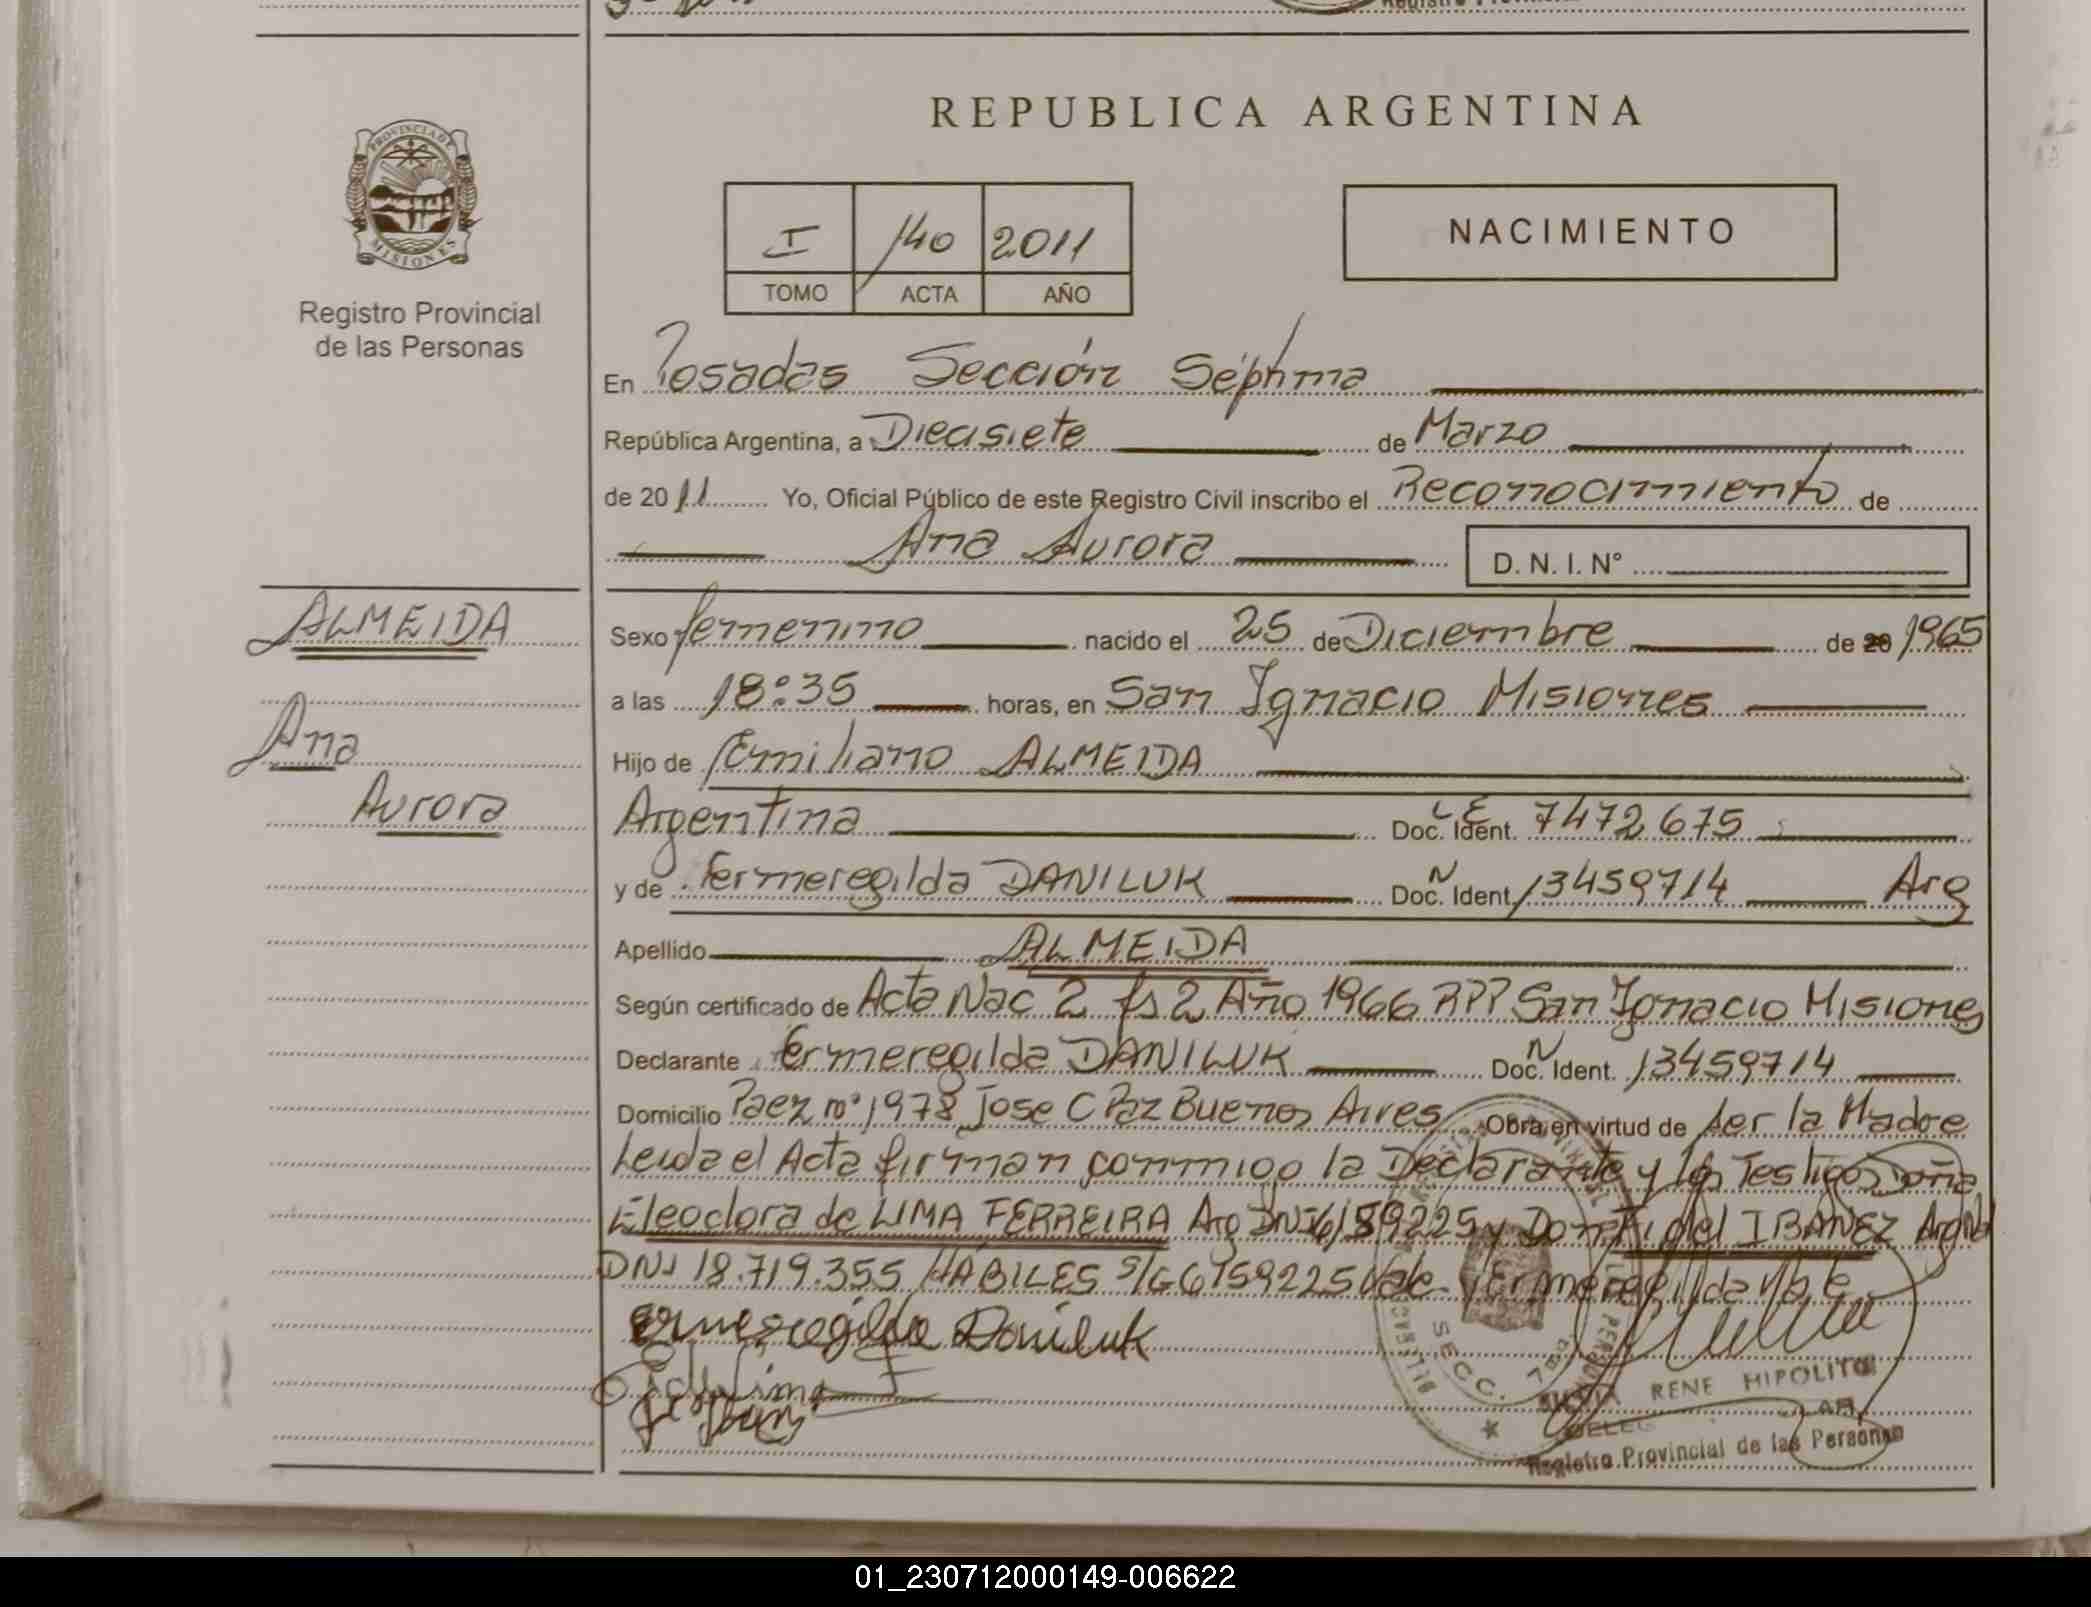 REPUBLICA ARGENTINA
PROVINCIA DE
MISIONES
Registro Provincial
de las Personas
I 140 2011
TOMO ACTA AÑO
NACIMIENTO
En Posadas Sección Séptima
República Argentina, a Diecisiete de Marzo
de 2011 Yo, Oficial Público de este Registro Civil inscribo el Reconocimiento de
Ana Aurora D. N. I. N°
ALMEIDA
Ana
Aurora
Sexo femenino nacido el 25 de Diciembre de 20 1965
a las 18:35 horas, en San Ignacio Misiones
Hijo de Emiliano ALMEIDA
Argentina Doc. Ident. L E 7472675
y de Termeregilda DANILUK Doc. Ident. N 13459714 Arg
Apellido ALMEIDA
Según certificado de Acta Nac 2 fs 2 Año 1966 RPP San Ignacio Misiones
Declarante Ermeregilda DANILUK Doc. Ident. N 13459714
Domicilio Paez nº 1978 Jose C Paz Buenos Aires Obra en virtud de ser la Madre
Leida el Acta firman conmigo la Declarante y los Testigos Doña
Eleodora de LIMA FERREIRA Arg DNI 6159225 y Don Fidel IBAÑEZ Arg Nat
DNI 18.719.355 HÁBILES S/G 6159225 Vale Ermeregilda Vale
Ermeregilda Daniluk
Lima
SECC. 7ma
RENE HIPOLITO
DELEG
Registro Provincial de las Personas
01_230712000149-006622